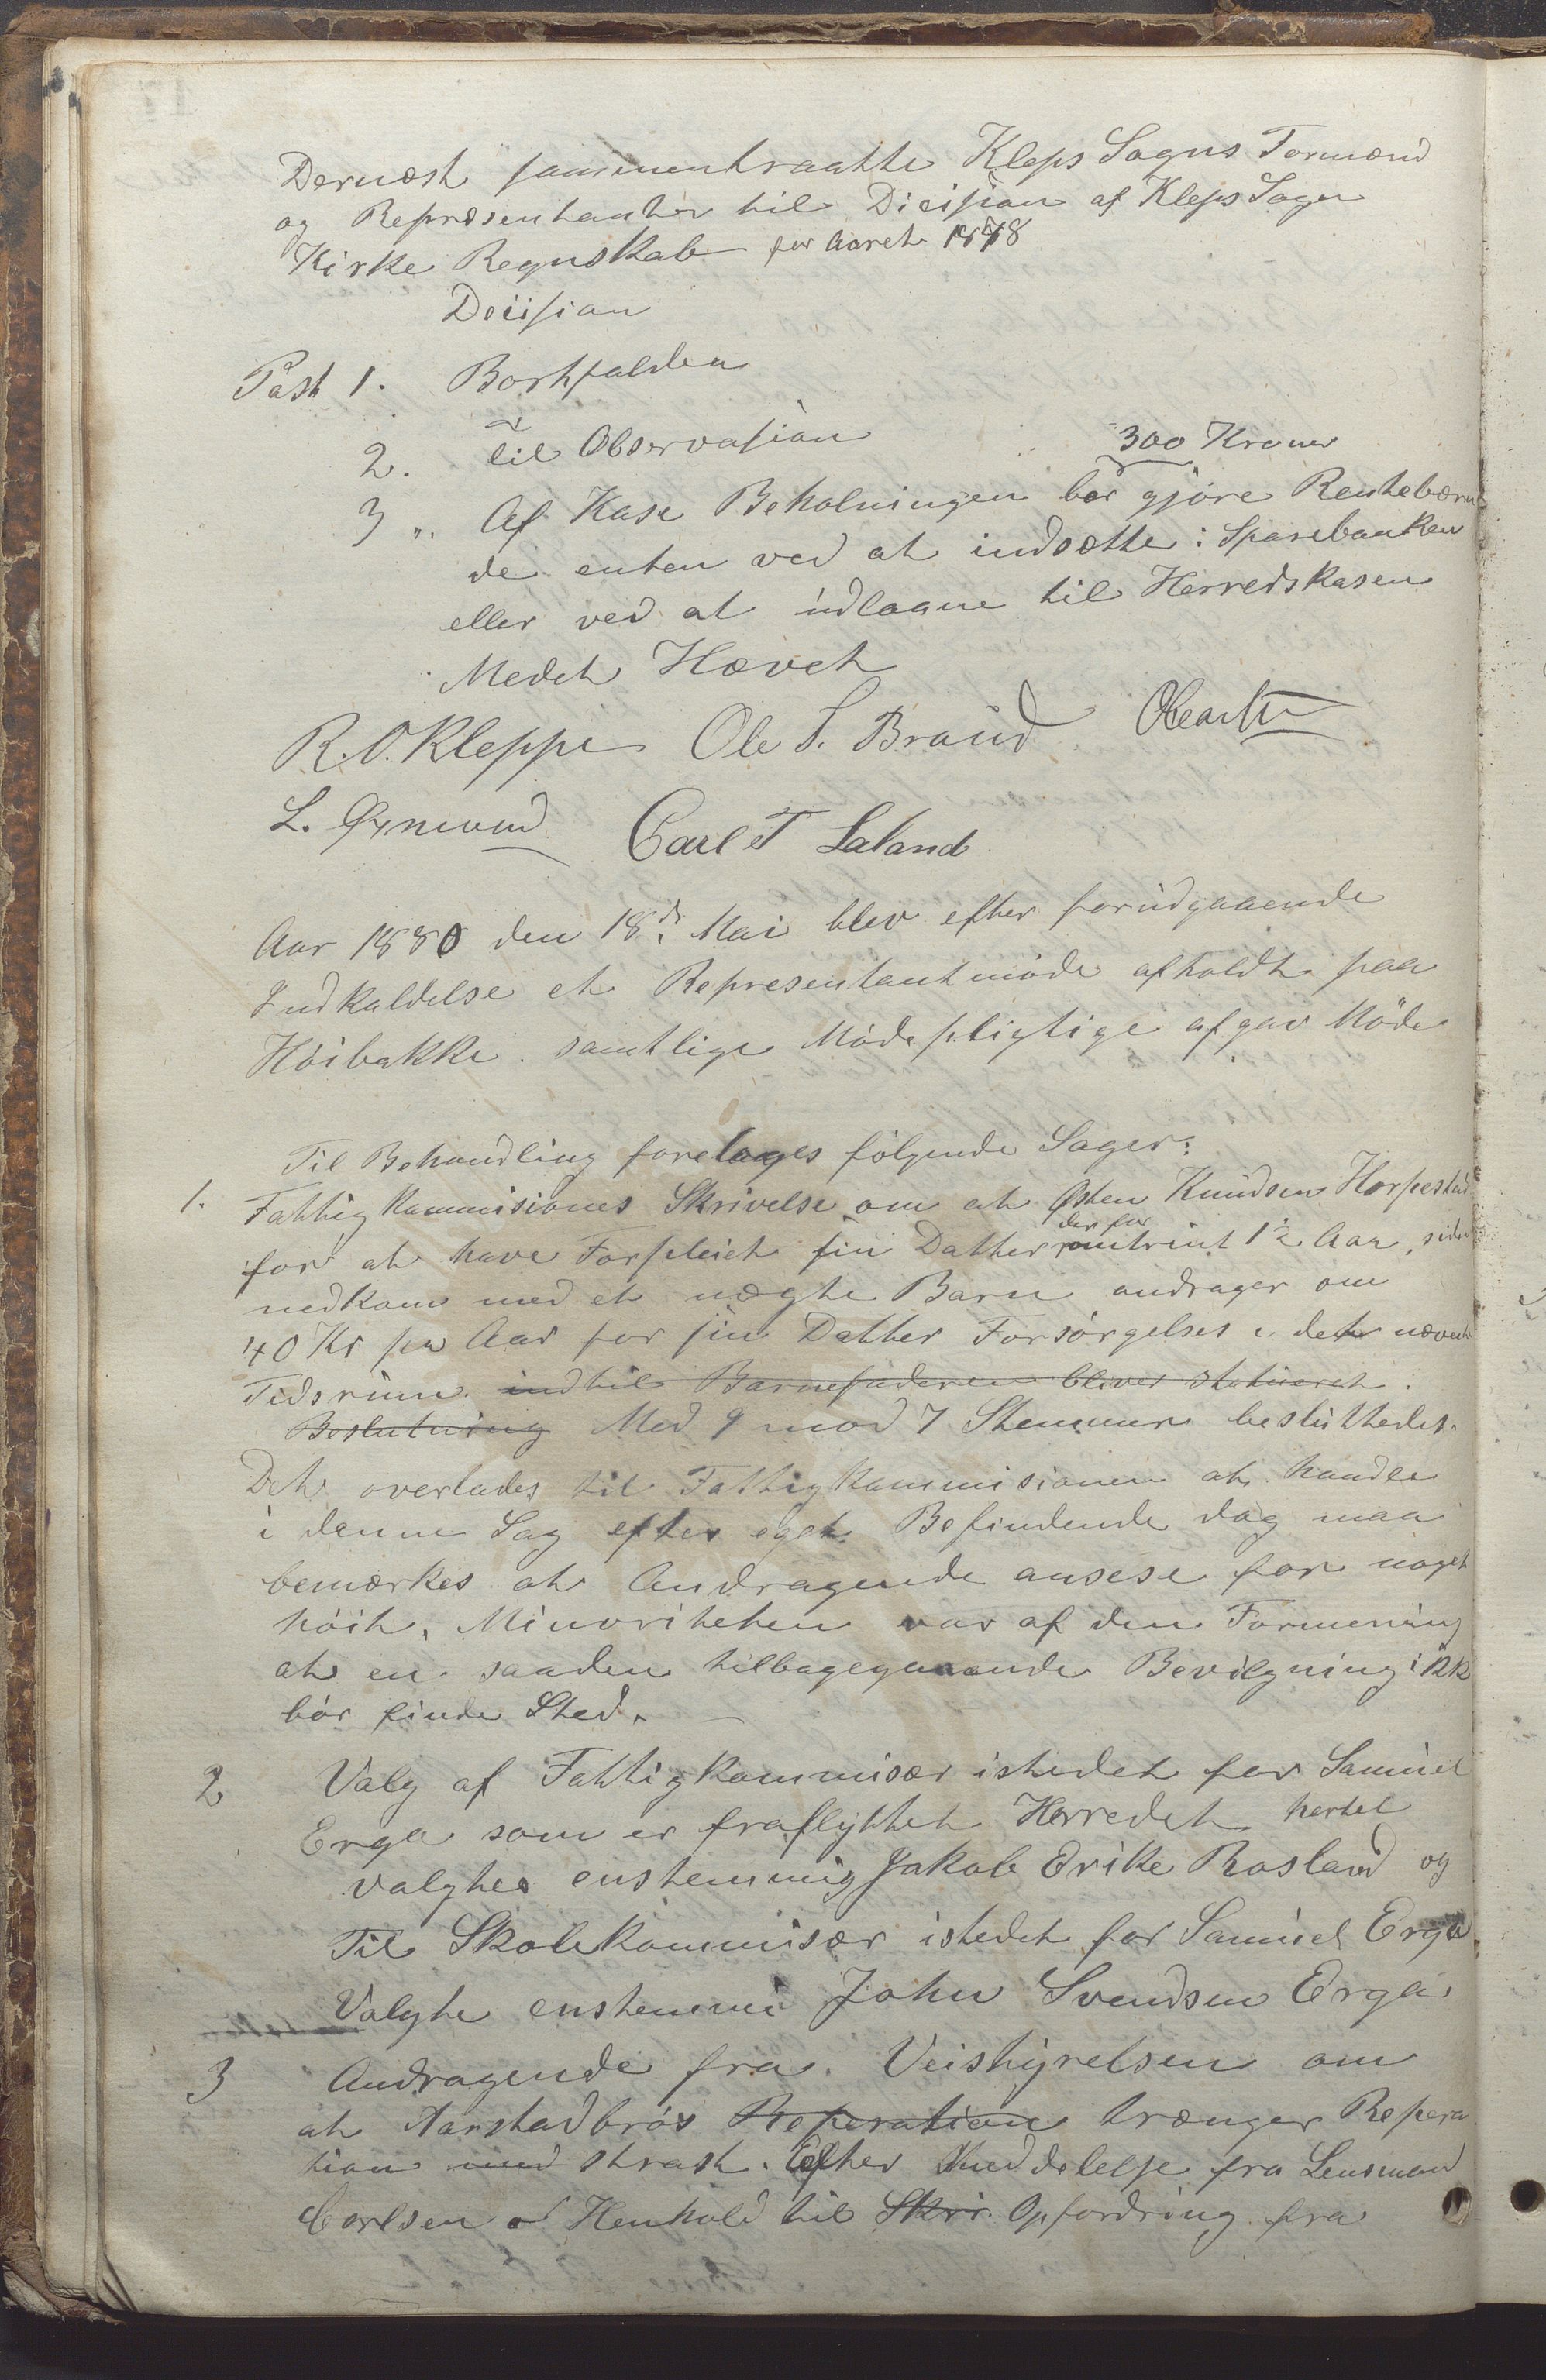 Dernæst sammentraatte Kleps Sogns Formænd
og Repræsentanter til Dicisian af Kleps Sogn
Kirke Regnskab for Aaret 1878
Decisian
Post 1. Bortfalden
2. til Observasian
300 Kroner
3 „. Af Kase Beholningen bør gjøre Rentebæren
de enten ved at indsætte i Sparebanken
eller ved at udlaane til Herredskasen
Mødet Hævet
R. O. Kleppe Ole S. Braud
L. Øxnevad Carl T Laland
Aar 1880 den 18de Mai blev efter forudgaaende
Indkaldelse et Representantmøde afholdt paa
Høibakke. samtlige Mødepligtige afgav Møde
Til Behandling foretoges følgende Sager:
1. Fattigkommisiones Skrivelse om at Østen Knudsen Horpestad
for at have Forpleiet sin Datter der for omtrint 1½ Aar, siden
nedkom med et uægte Barn andrager om
40 Kr pr Aar for sin Datter Forsørgelses i det nævnte
Tidsrum. indtil Barnefaderen bliver
Beslutning Med 9 mod 7 Stemmer besluttedes.
Det overlades til Fattigkommisionen at handle
i denne Sag efter eget Befindende dog maa
bemærkes at Andragende ansese for noget
høit. Minoriteten var af den Formening
at en saaden tilbagegaaende Bevilgning ikk
bør finde Sted.
2 Valg af Fattigkommisær istedet for Samuel
Erga som er fraflyttet Herredet hertel
valgtes enstemmig Jakob Erike Rosland og
Til Skolekommisær istedet for Samuel Erga
Valgte enstemmi John Svendsen Erga
3 Andragende fra Veistyrelsen om
at Aarstadbros Reperation trænger Repera
tion med strask. Efter Meddelelse fra Lensmand
Carlsen i Henhold til Skri. Opfordring fra